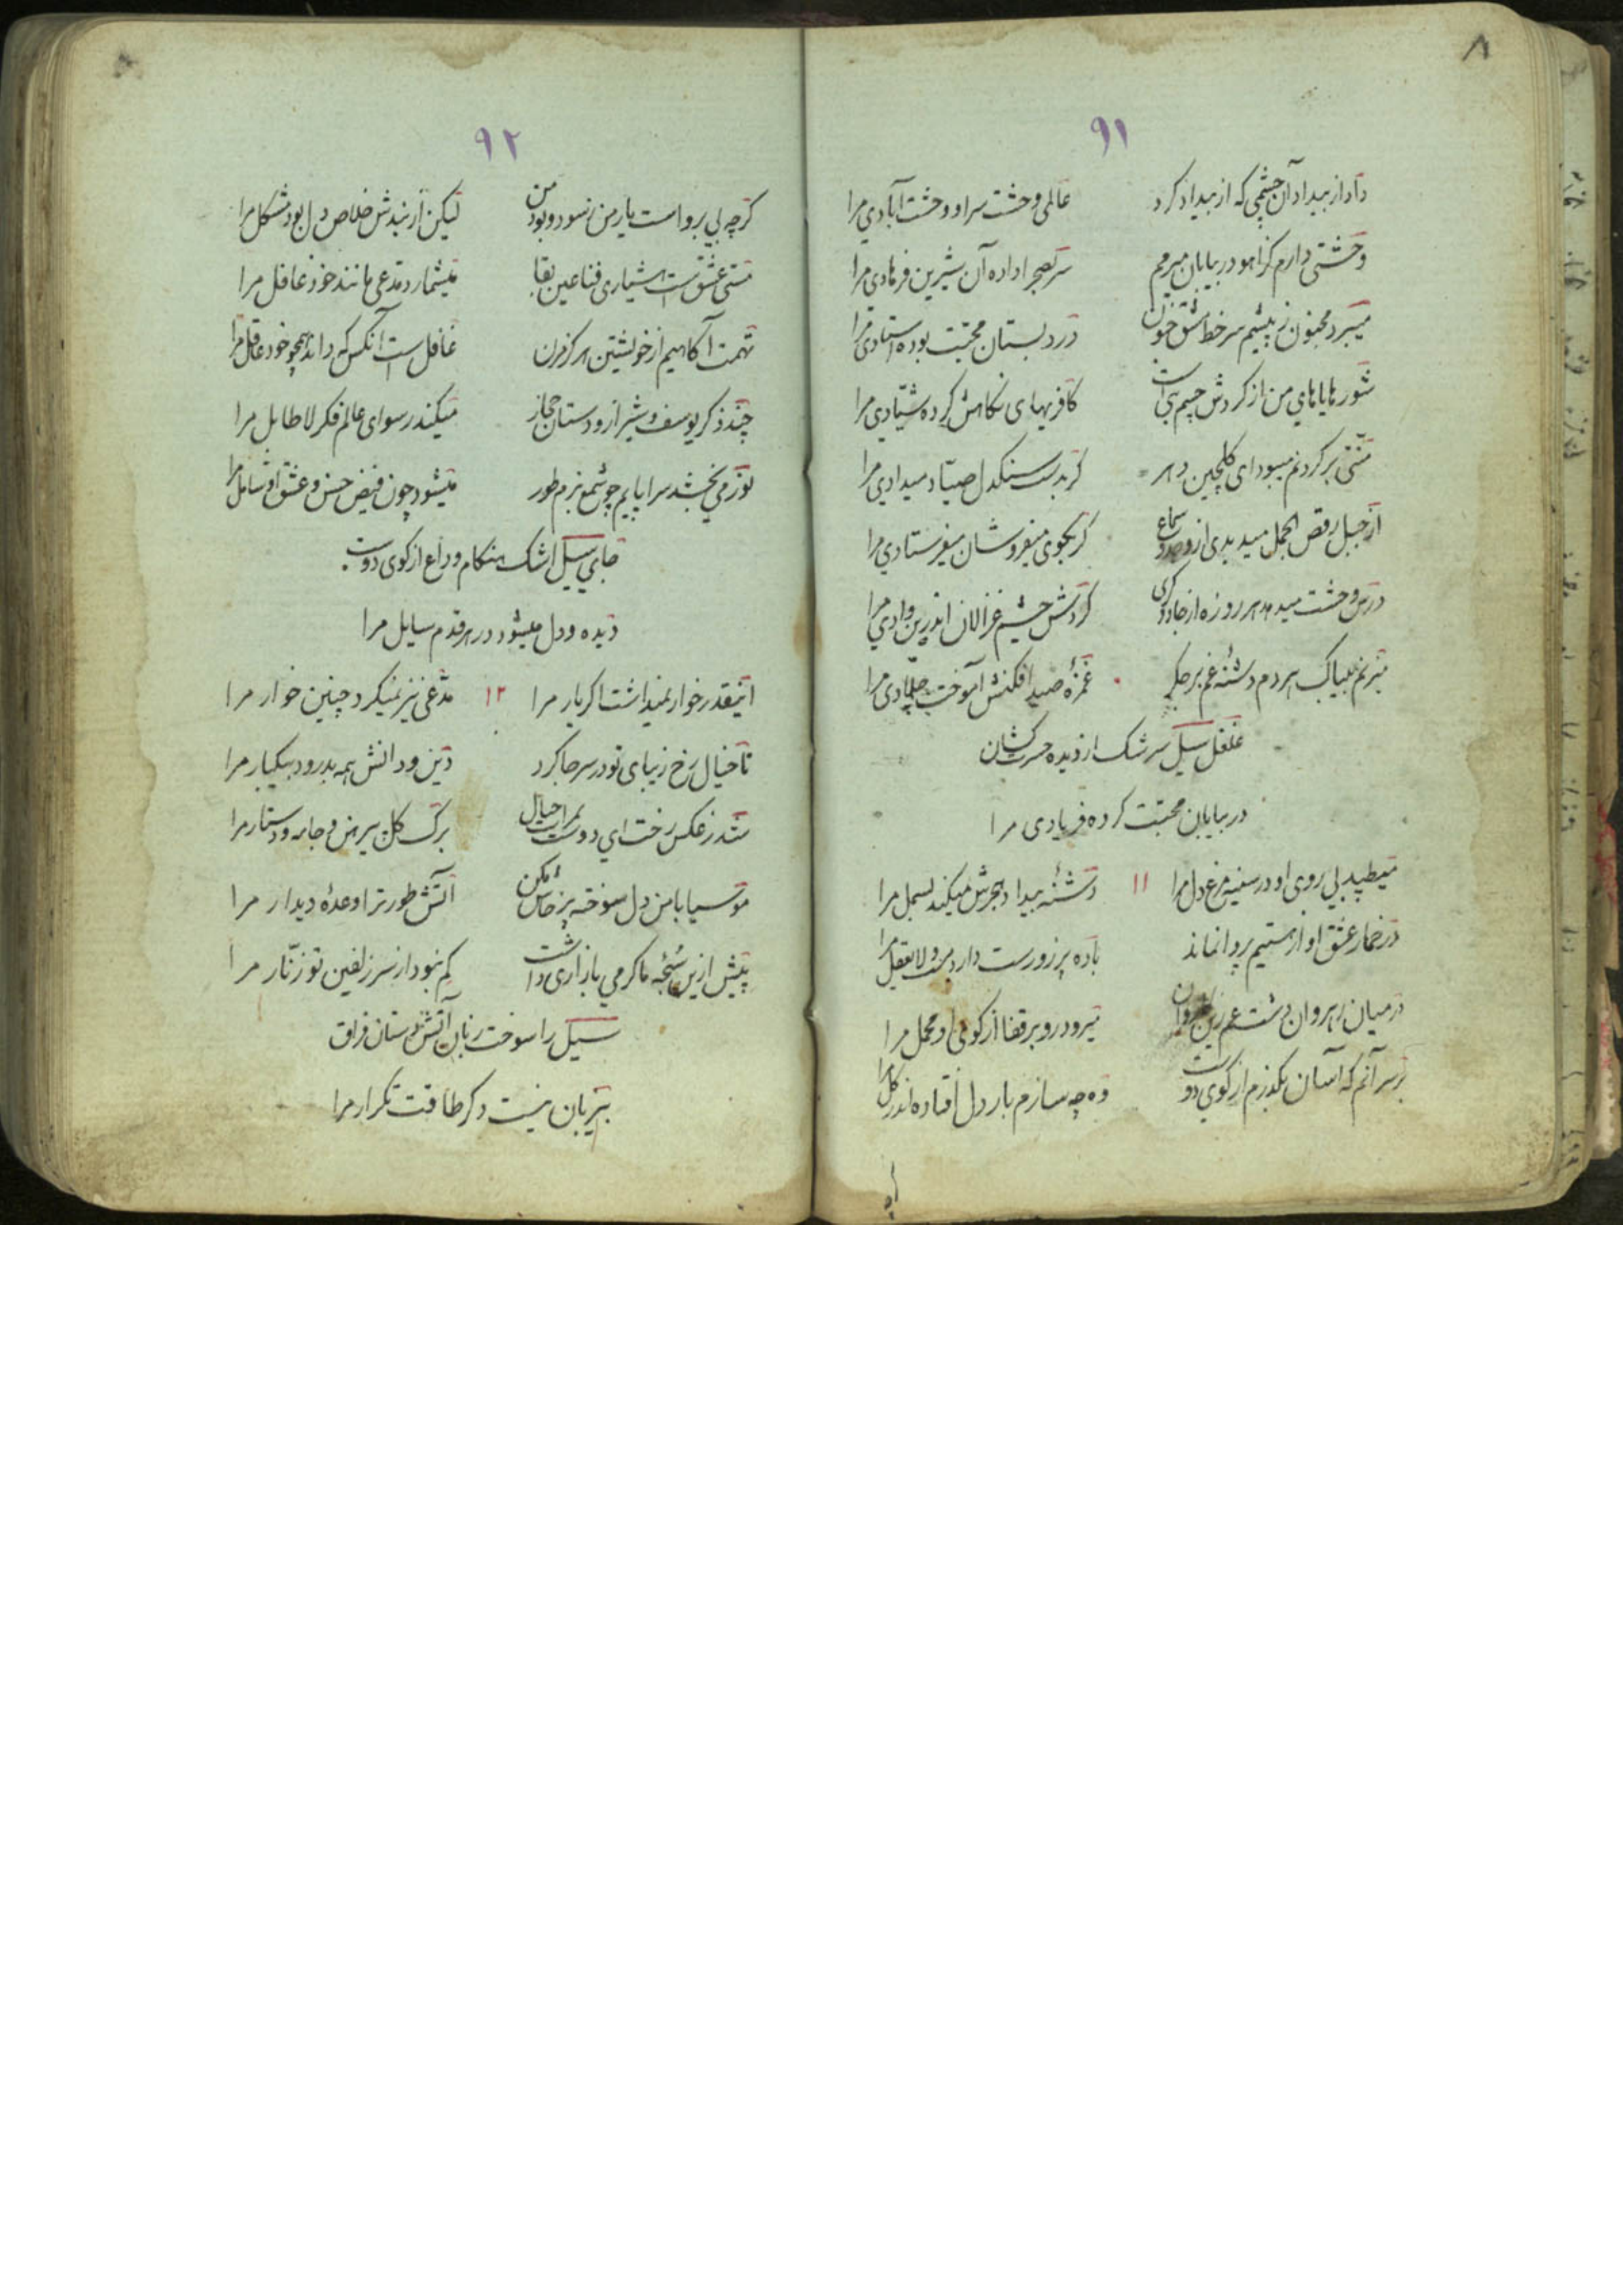 ۸
۹۱
داد از بیداد آن چشمی که از بیداد کرد عالمی وحشت سرا و وحشت آبادی مرا
وحشتی دارم کز آهو در بیابان میرمم سر بصحرا داده آن شیرین فرهادی مرا
میبرد مجنون ز پیشم سر خط مشق جنون در دبستان محبت بوده استادی مرا
شور هایاهای من از گردش چشم بت است کافریهای نگاهش کرده شیادی مرا
منتی بر گردنم میبود ای گلچین دهر گر بدست سنگدل صیاد میدادی مرا
از جبل رقص الجمل میدیدی از وجد و سماع گر بکوی میفروشان میفرستادی مرا
درس وحشت میدهد هر روزه از جادوگری گردش چشم غزالان اندرین وادی مرا
میزنم بیباک هر دم دشنه غم بر جگر غمزه صید افکنش آموخت جلادی مرا
غلغل سیل سرشک از دیده حسرت کشان
در بیابان محبت کرده فریادی مرا
میطپد بی روی او در سینه مرغ دل مرا ۱۱ دشنه بیداد هجرش میکند بسمل مرا
در خمار عشق او از هستیم پروا نماند باده پرزورست دارد مست و لایعقل مرا
در میان رهروان دشت غم زین میرود رو بر قفا از کوی او محمل مرا
بر سر آنم که آسان بگذرم از کوی دوست وه چه سازم بار دل افتاده اندر گل مرا
۹۲
گرچه بی پرواست یار من ز سود و بود من لیکن از بندش خلاص دل بود مشکل مرا
مستی عشق ست هشیاری فنا عین بقا میشمارد مدعی مانند خود غافل مرا
تهمت آگاهیم از خویشتن هرگز مزن غافل ست آنکس که داند همچو خود عاقل مرا
چند ذکر یوسف و شیراز و دستان حجاز میکند رسوای عالم فکر لاطایل مرا
نور می بخشد سراپایم چو شمع بزم طور میشود چون فیض حسن و عشق او شامل مرا
جای سیل اشک هنگام وداع از کوی دوست
دیده و دل میشود در هر قدم سایل مرا
اینقدر خوار نمیداشت اگر یار مرا ۱۲ مدعی نیز نمیکرد چنین خوار مرا
تا خیال رخ زیبای تو در سر جا کرد دین و دانش همه بدرود بیکبار مرا
شد ز عکس رخت ای دوست بمرآت خیال برگ گل پیرهن و جامه و دستار مرا
موسیا با من دل سوخته پرخاش مکن آتش طور ترا وعده دیدار مرا
پیش ازین سبحه ما گرمی بازاری داشت کم نبود از سر زلفین تو زنار مرا
سیل را سوخت زبان آتش دستان فراق
بیزبان نیست دگر طاقت تکرار مرا